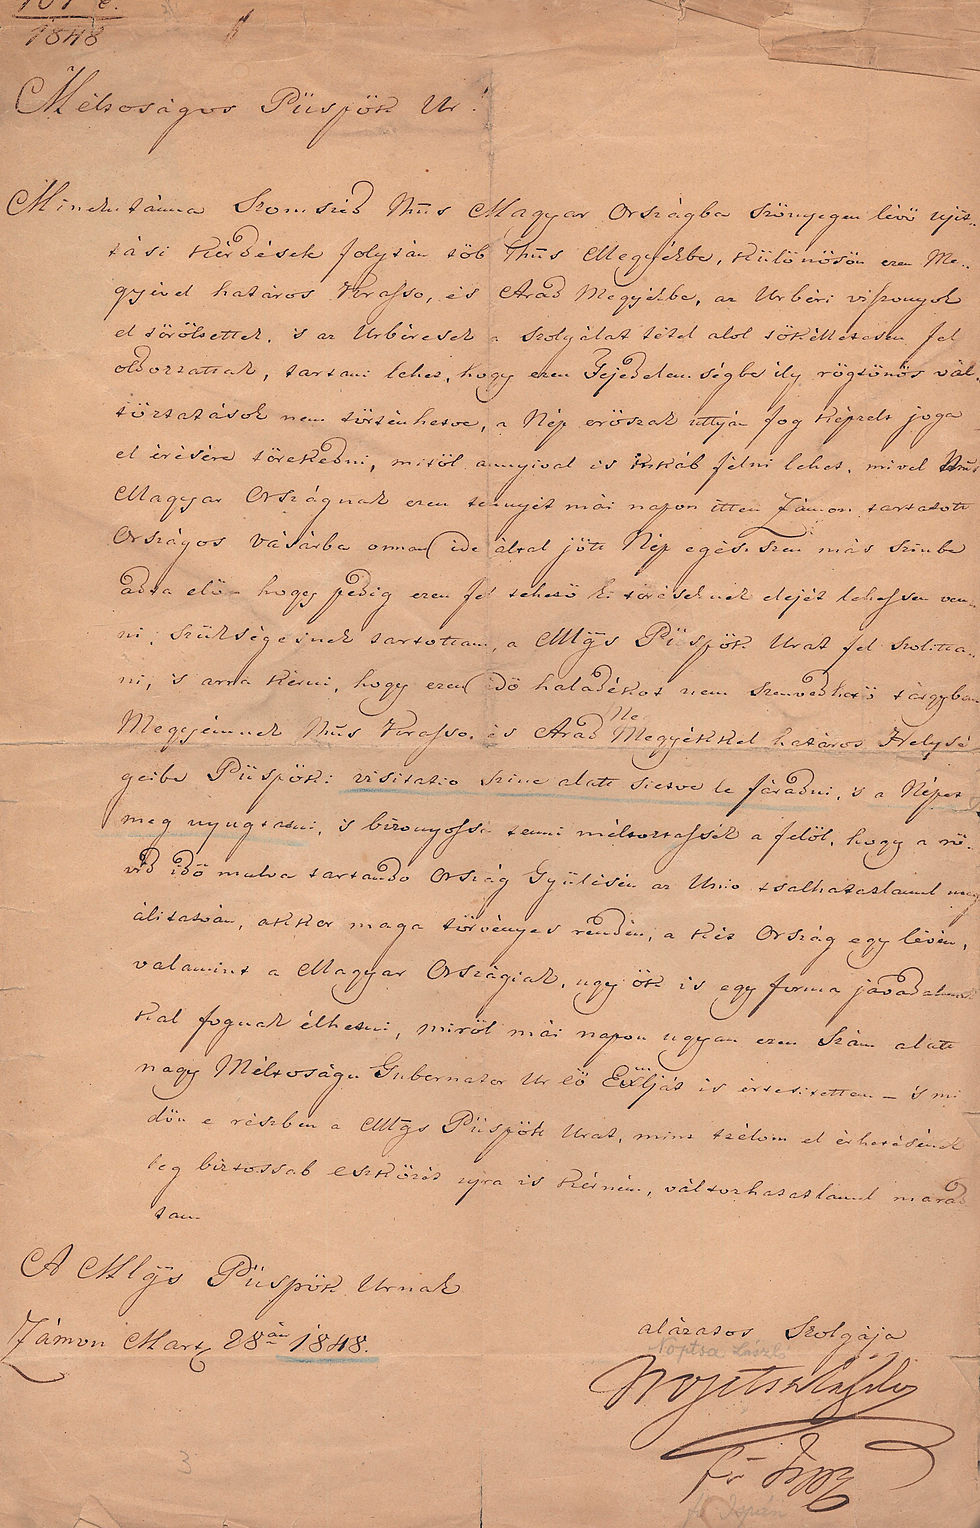 1848
Méltoságos Püspök Ur!
Mindutánna Szomszéd Nms Magyar Országba szönyegen lévö ujit-
tási kérdések folytán töb Nms Megyékbe, különösön ezen Me-
gyével határos Krasso, és Arad Megyékbe, az Urbéri viszonyok
el töröltettek, s az Urbéresek a szolgálat tétel alol tökélletesen fel
oldoztattak, tartani lehet, hogy ezen Fejedelemségbe ily rögtönös vál-
toztatások nem történhetve, a Nép erőszak uttyán fog képzelt joga
el érésére törekedni, miröl annyival is inkáb félni lehet, mivel Nms
Magyar Országnak ezen tennyét mái napon itten Zámon tartatott
Országos vásárba onnan ide által jött Nép egészszen más szinbe
adta elö – hogy pedig ezen fel tehető ki töréseknek elejét lehessen ven-
ni, szükségesnek tartottam, a Mlgs Püspök Urat fel szolitta-
ni, s arra kérni, hogy ezen idö haladékot nem szenvedhetö tárgyban
Megyémnek Nms Krasso, és Arad Ne Megyékkel határos Helysé-
geibe Püspöki visitatio szine alatt sietve le fáradni, s a Népet
meg nyugtatni, s bizonyossá tenni méltoztassék a felöl, hogy a rö-
vid idö mulva tartando Ország Gyülésén az Unio tsalhatatlanul meg
álitatván, akkor maga törvényes rendén, a két Ország egy lévén,
valamint a Magyar Országiak, ugy ök is egy forma jávadalmak-
kal fognak élhetni, miröl mái napon ugyan ezen Szám alatt
nagy Méltoságu Gubernator Ur eö Exlját is értesitettem – s mi
dön e részben a Mlgs Püspök Urat, mint tzélom el érhetésének
leg biztossab eszközét ujra is kérném, változhatatlanul marad-
tam
A Mlgs Püspök Urnak
Zámon Mart 28án 1848.
alázatos Szolgája
Noptsa László
Noptsa László
fö Ispán
fő Ispán
3